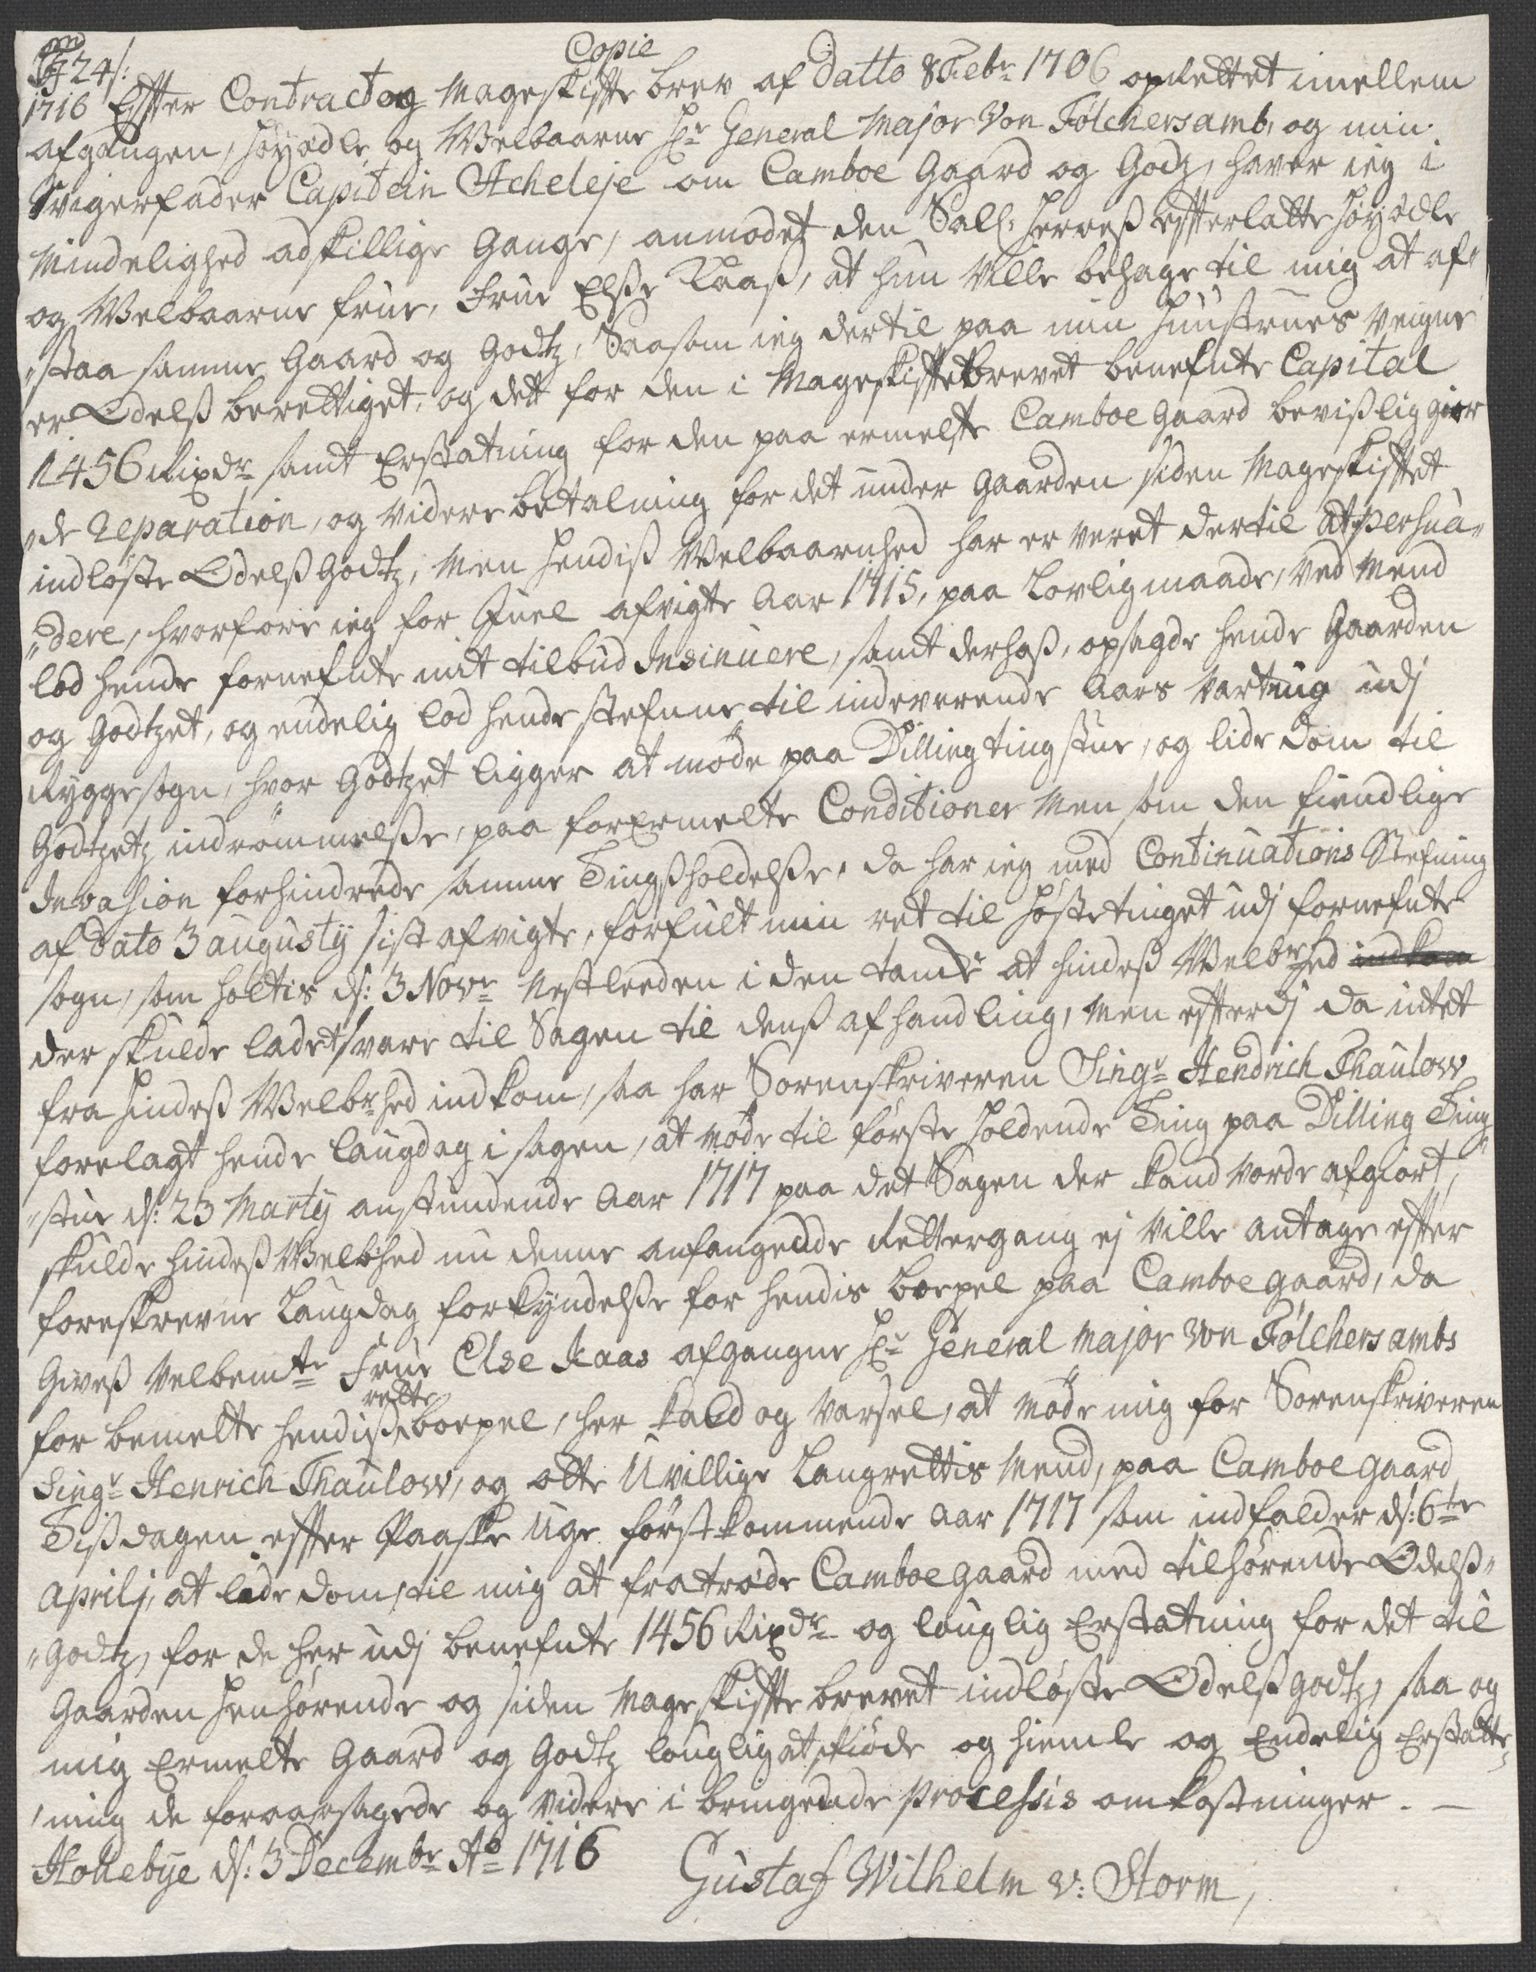 24/:
Copie
1716 Effter Contract og Mageskiffte brev af Datto 8 Febr 1706 oprettet imellem
afgangen, Høyædle og Welbaarne Hr General Major Von Følchersamb, og min
Svigerfader Capitein Acheleje om Camboe Gaard og Godz, haver ieg i
Mindelighed adskillige Gange, anmodet den Sall: Herres effterlatte Høyædle
og Welbaarne frue, Frue Elsse Kaas, at hun ville behage til mig at af-
"staa samme Gaard og Godtz, Saasom ieg dertil paa min Hustrues Veigne
er Odelss berettiget, og det for den i Mageskifftebrevet benefnte Capital
1456 Rixdr samt Erstatning for den paa ermelte Camboe Gaard bevislig gior
"de Reparation, og videre betalning for det under Gaarden siden Mageskifftet
indløste Odelss Godtz, Men Hendiss Welbaarnhed har er veret dertil at persua-
"dere, hvorfore ieg for Juel afvigte Aar 1715, paa Lovlig maade, ved Mend
lod hende fornefnte mit tilbud Insinuere, samt derhoss, opsagde hende Gaarden
og Godtzet, og endelig lod hende stefnne til indeverende Aars Vartting udj
Rygge sogn, hvor Godtzet ligger at møde paa Dilling tingstue, og lide Dom til
Godtzetz indrømmelsse, paa forermelte Conditioner Men som den fiendlige
Invasion forhindrede samme Tingssholdelsse, da har ieg med Continuations Stefning
af Dato 3 augusty sist afvigte, forfult min ret til Høstetinget udj fornefnte
sogn, som holtis d: 3 Novr Nestleeden i den tancke at hindess Welbrhed indkom
der skulde ladet svare til Sagen til denss afhandling, Men effterdj da intet
fra Hindess Welbrhed indkom, saa har Sorenskriveren Singr Hendrich Thaulow
forelagt hende laugdag i sagen, at møde til første holdende Ting paa Dilling Ting
"stue d: 23 Marty anstundende Aar 1717 paa det Sagen der kand vorde afgiort,
skulde hindess Welbhed nu denne anfangende Rettergang ej ville antage effter
foreskrevne Laugdag forkyndelsse for hendis boepel paa Camboe gaard, da
Givess velbemte Frue Else Kaas afgangne Hr General Major von Følchersambs
rette
for bemelte hendiss boepel, her kald og varsel, at møde mig for Sorenskriveren
Singr Henrich Thaulow, og otte Uvillige Laugrettis Mend, paa Camboe gaard
Tissdagen effter Paaske Uge førstkommende Aar 1717 som indfalder d: 6te
Aprilj, at lide dom til mig at fratræde Camboe gaard med tilhørende Odelss-
"Godtz, for de her udj benefnte 1456 Rixdr og lauglig Erstatning for det til
Gaarden henhørende og siden Mageskiffte brevet indløste Odelss Godtz, saa og
mig Ermelte Gaard og Godtz lauglig at skiøde og hiemle og Endelig Erstatte
mig de foraarsagede og videre i bringende Processis omkostninger. —
Hollebye d: 3 Decembr Ao 1716
Gustaf Wilhelm v: Storm,